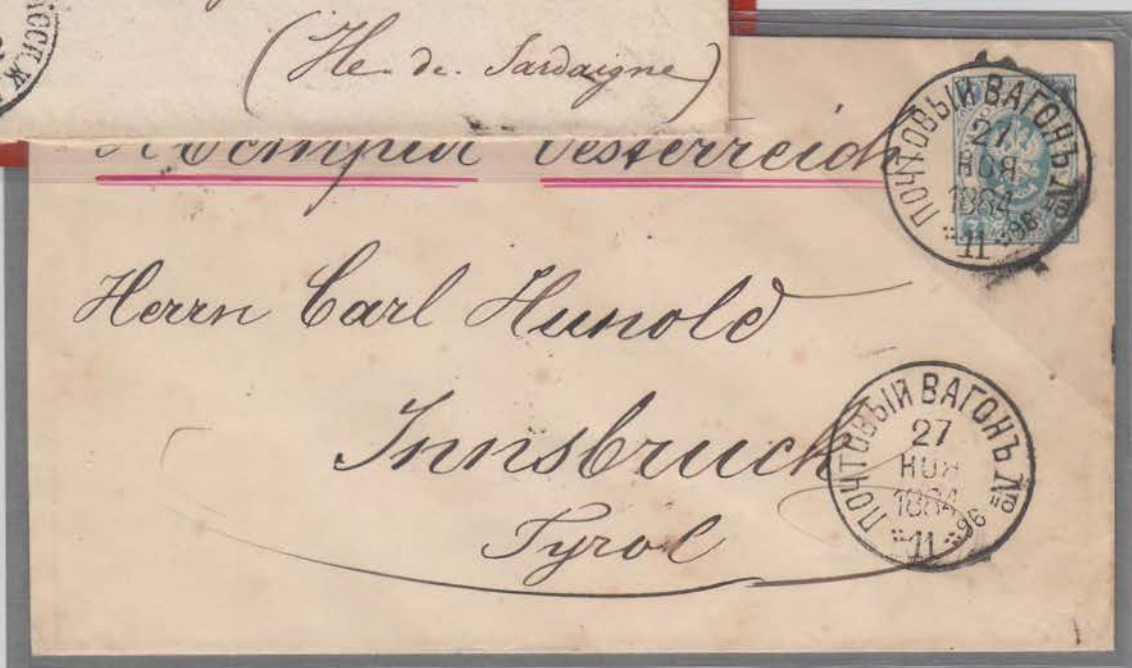 (Ile de Sardaigne)
Oesterreich
ПОЧТОВЫЙ ВАГОНЪ № 96
27
НОЯ
1884
11
Herrn Carl Hunold
Innsbruck
Tyrol
ПОЧТОВЫЙ ВАГОНЪ № 96
27
НОЯ
1884
11